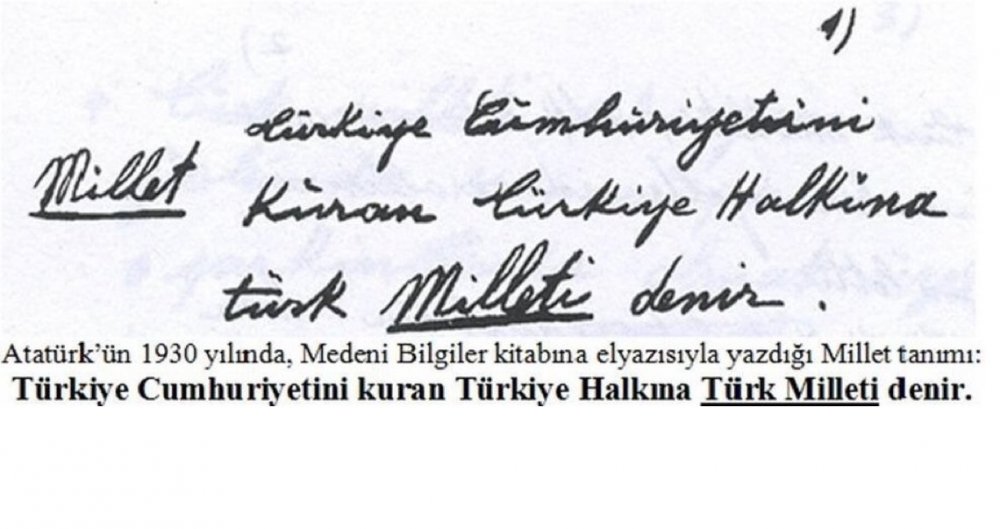 1)
Türkiye Cümhüriyetini
Millet Kuran Türkiye Halkına
türk Milleti denir.
Atatürk’ün 1930 yılında, Medeni Bilgiler kitabına elyazısıyla yazdığı Millet tanımı:
Türkiye Cumhuriyetini kuran Türkiye Halkına Türk Milleti denir.